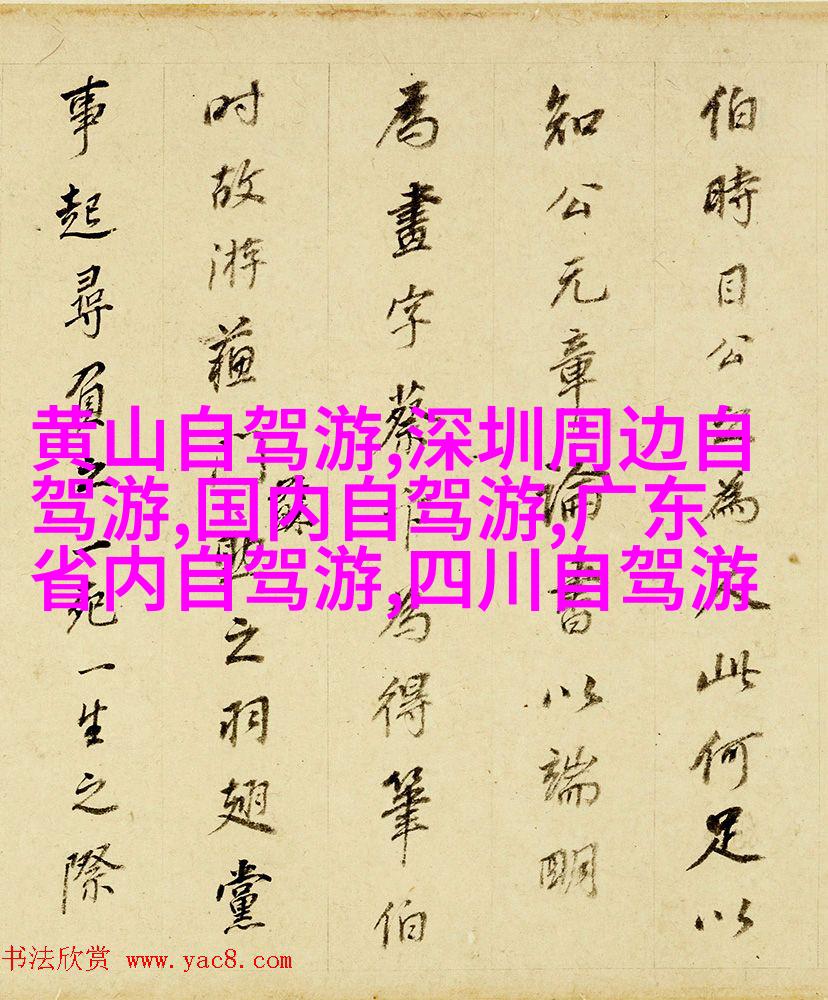 伯時目公為此何足以
知公元章論書以端明
為畫字蔡卞為得筆伯
时故游蘓之羽翅黨
事起尋負之一死一生之際
黄山自驾游,深圳周边自
驾游,国内自驾游,广东
省内自驾游,四川自驾游
书法欣赏 www.yac8.com